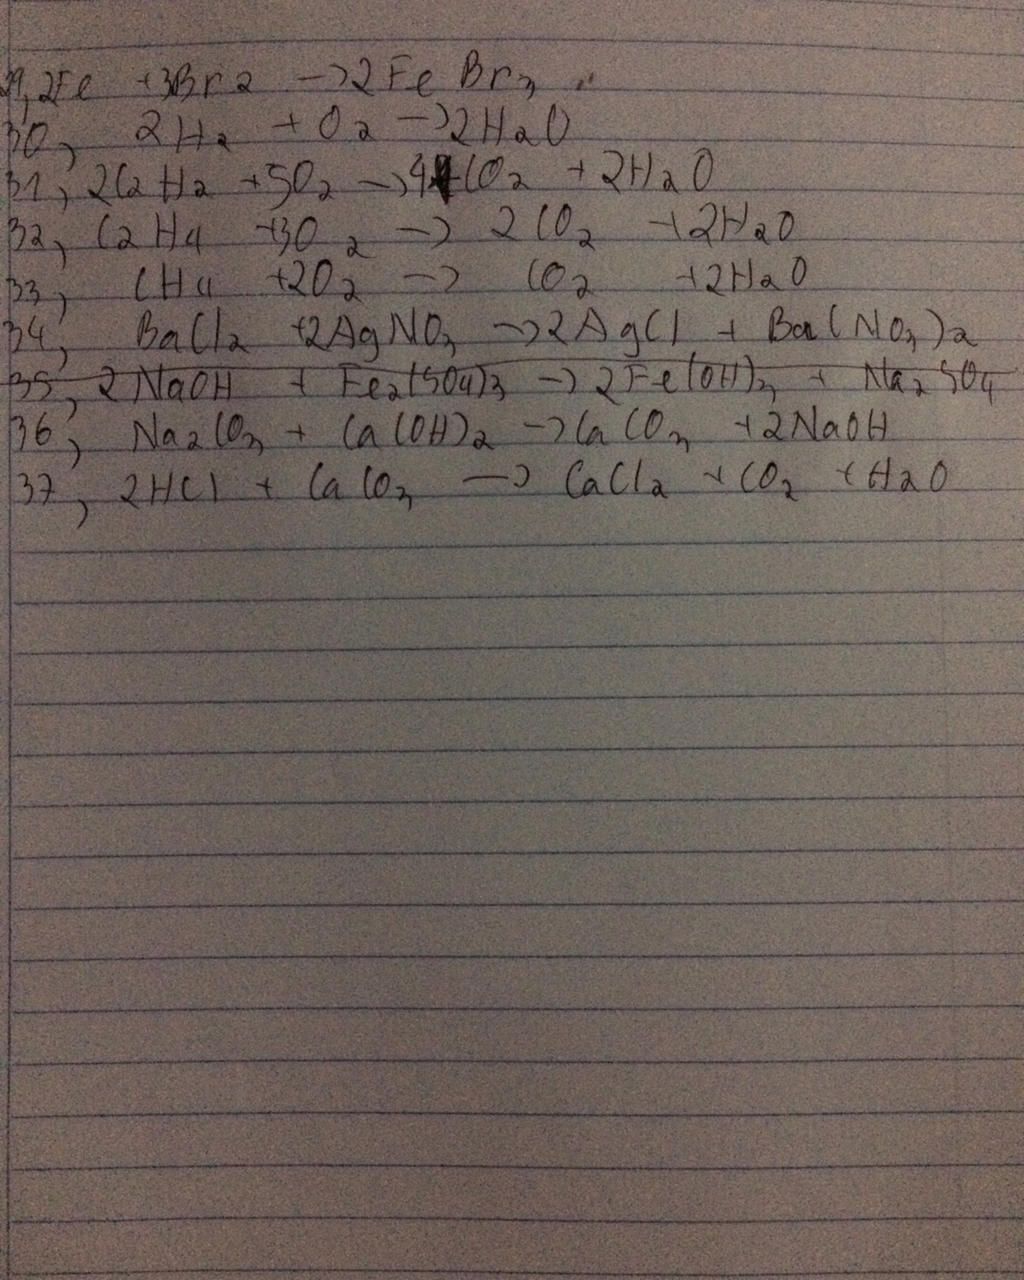 29, 2Fe + 3Br2 → 2FeBr3
30, 2H2 + O2 → 2H2O
31, 2C2H2 + 5O2 → 4CO2 + 2H2O
32, C2H4 + 3O2 → 2CO2 + 2H2O
33, CH4 + 2O2 → CO2 + 2H2O
34, BaCl2 + 2AgNO3 → 2AgCl + Ba(NO3)2
35, 2NaOH + Fe2(SO4)3 → 2Fe(OH)3 + Na2SO4
36, Na2CO3 + Ca(OH)2 → CaCO3 + 2NaOH
37, 2HCl + CaCO3 → CaCl2 + CO2 + H2O